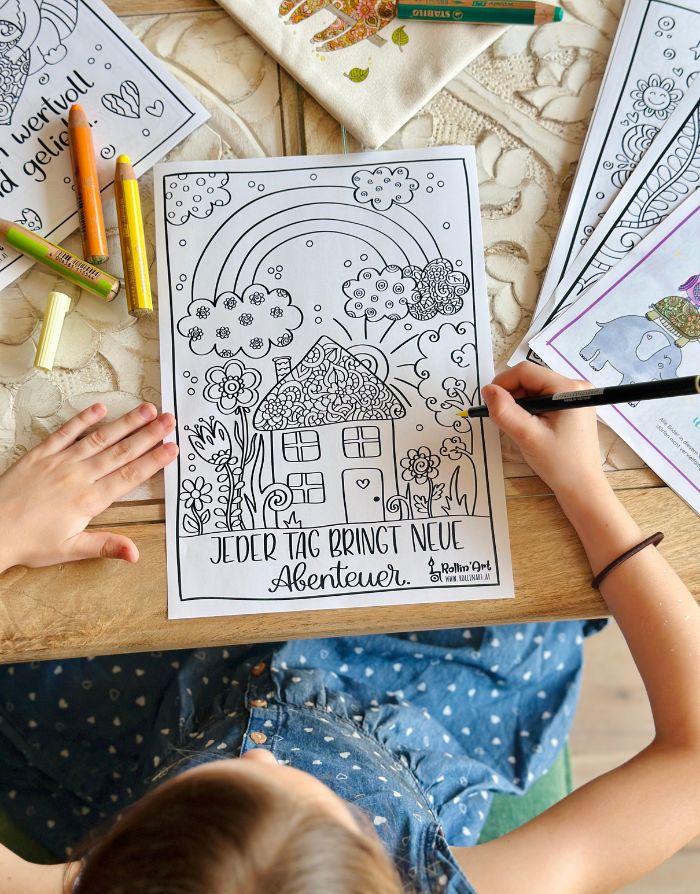 n wertvoll
d geliebt.
STABILO
JEDER TAG BRINGT NEUE
Abenteuer.
Rollin'Art
WWW.ROLLINART.AT